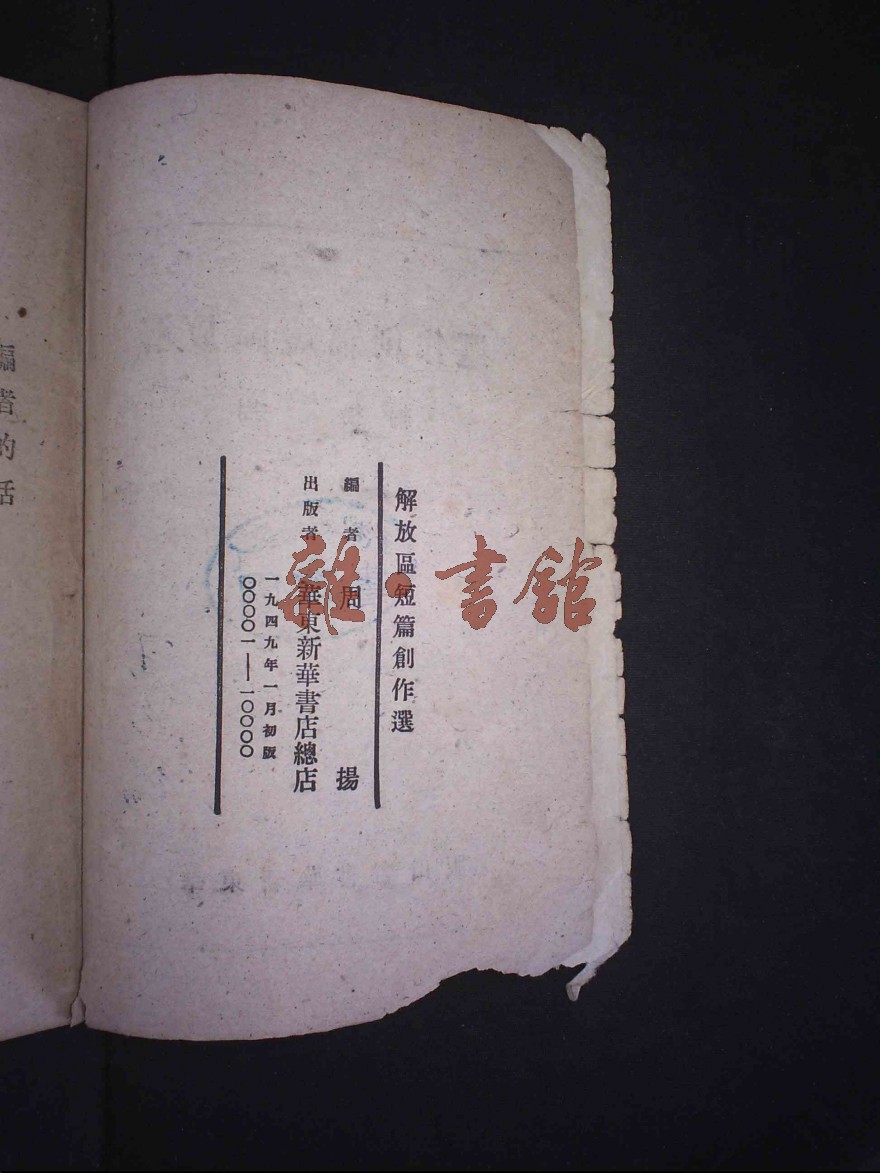 解放區短篇創作選
編者 周揚
出版者 華東新華書店總店
一九四九年一月初版
〇〇〇〇一——一〇〇〇〇
編者的話
雜·書館